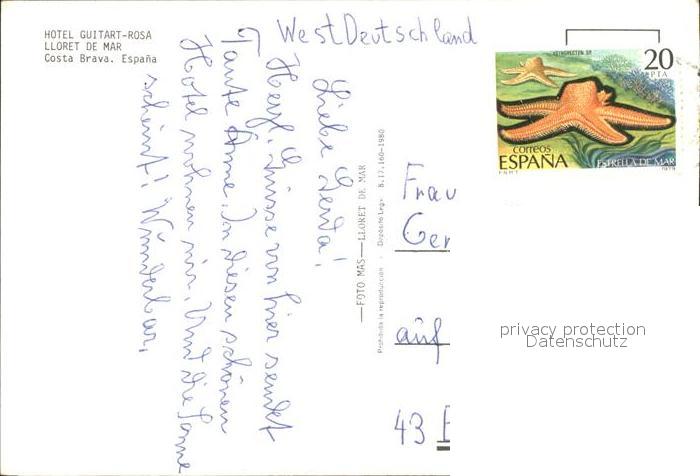 HOTEL GUITART-ROSA
LLORET DE MAR
Costa Brava. España
West Deutschland
Liebe Gerda!
Herzl. Grüsse von hier sendet
Tante Anne. In diesen schönen
Hotel wohnen wir. Und die Sonne
scheint! Wunderbar.
FOTO MAS — LLORET DE MAR
Prohibida la reproducción - Depósito Leg. B.17.160-1980
20
PTA
correos
ESPAÑA
ESTRELLA DE MAR
1979
Frau
Ger
auf
43
privacy protection
Datenschutz